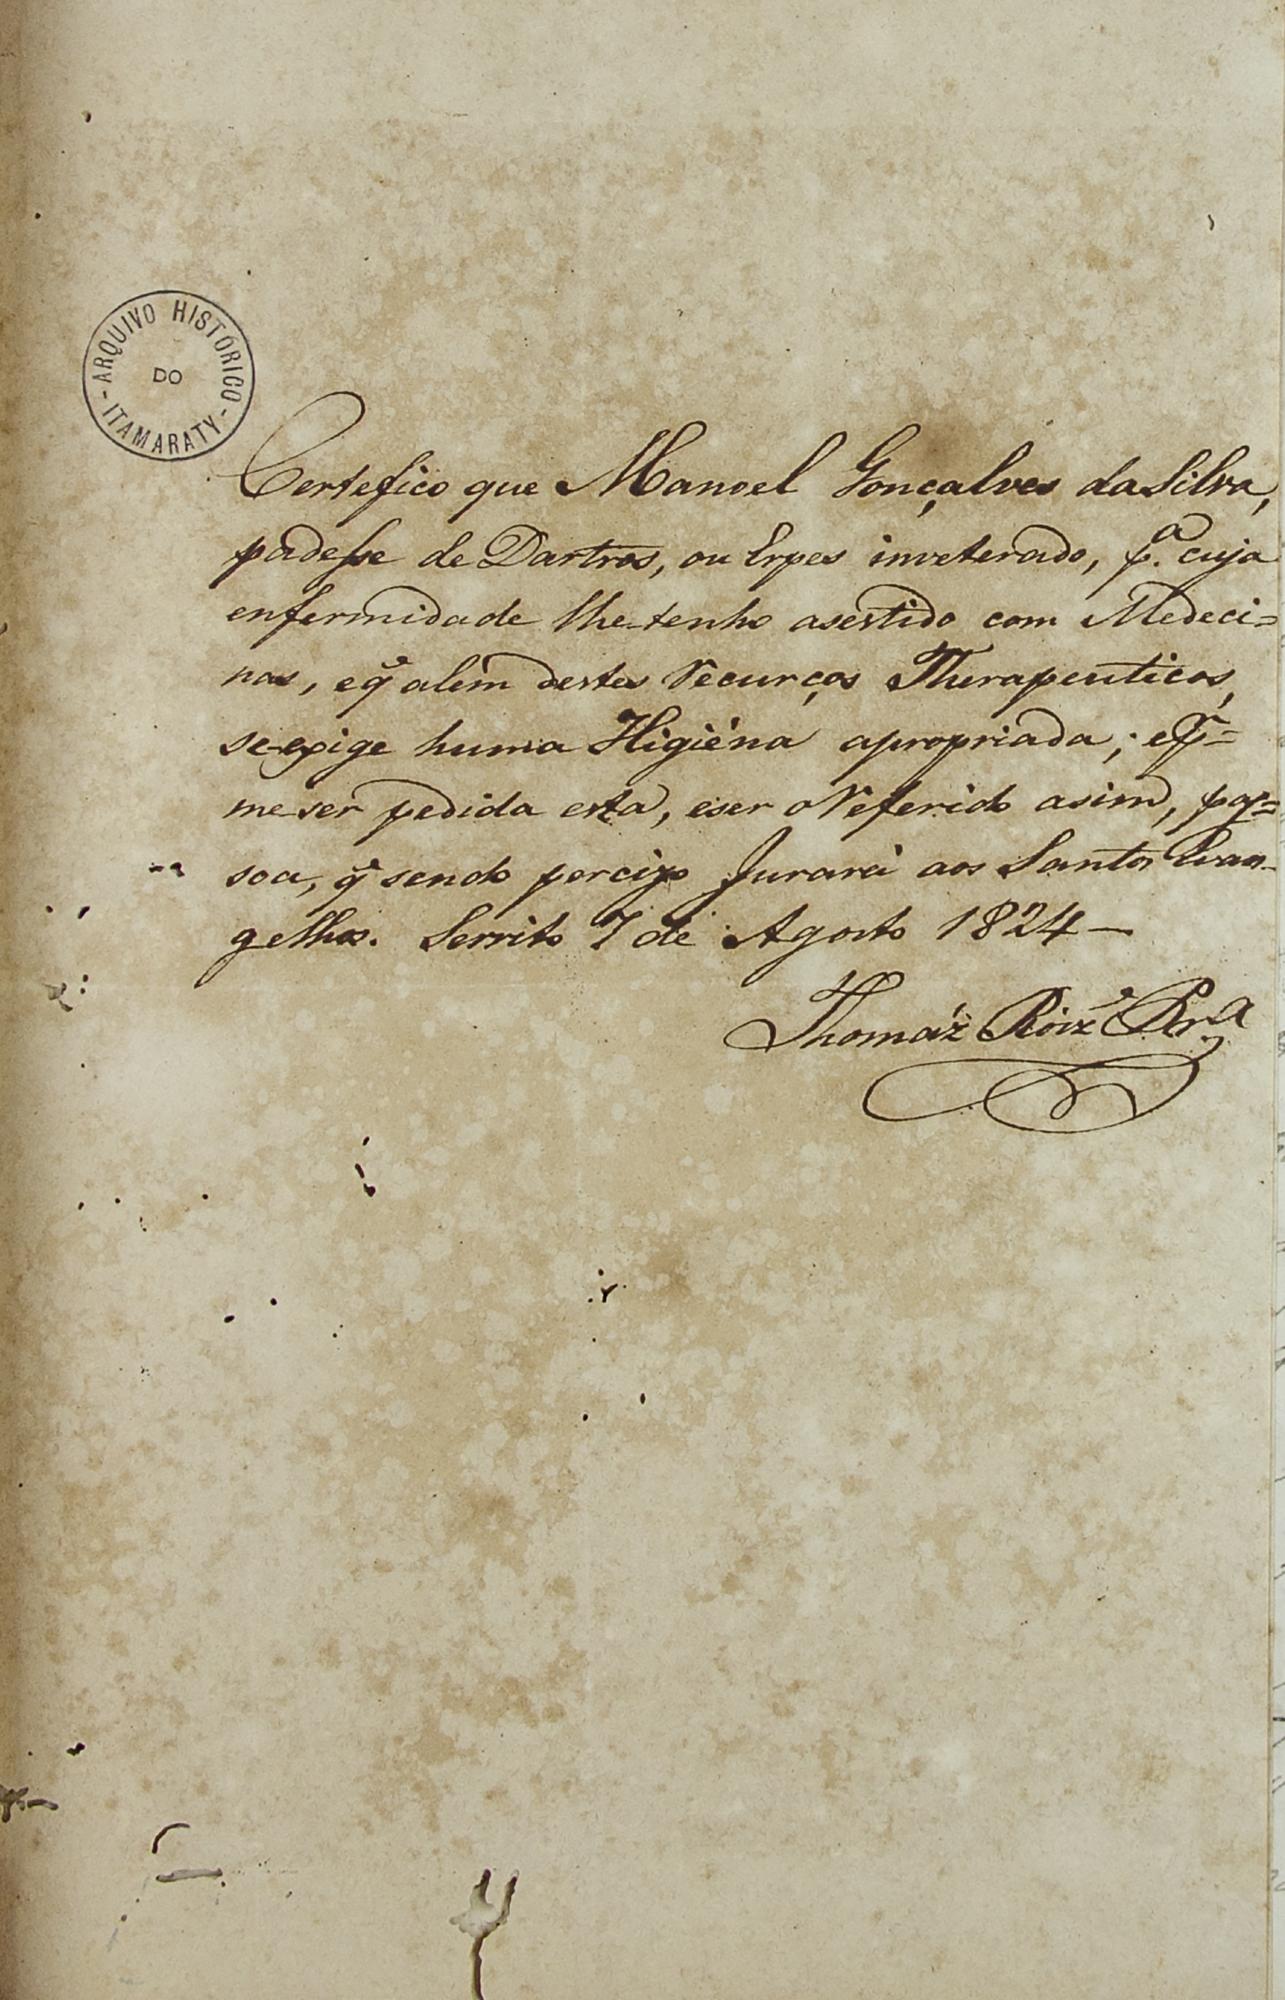 ARQUIVO HISTÓRICO
DO
ITAMARATY
Certefico que Manoel Gonçalves da Silva,
padesse de Dartros, ou Erpes inveterado, p.ª cuja
enfermidade lhe tenho asestido com Medeci=
nas, e q̃ alem destes Recurços Therapeuticos,
se exige huma Higiéna apropriada; e p.r
me ser pedida esta, e ser o Referido asim, pas=
soa, q̃ sendo percizo Jurará aos Santos Evan-
gelhos. Serrito 7 de Agosto 1824 —
Thomáz Roiz' Pr.ª